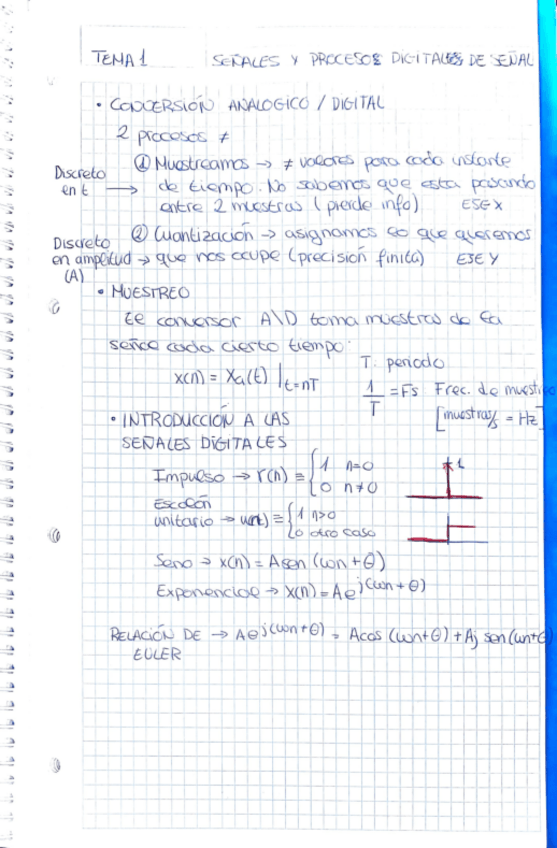 TEMA 1 SEÑALES Y PROCESOS DIGITALES DE SEÑAL
• CONVERSIÓN ANALOGICO / DIGITAL
2 procesos ≠
① Muestreamos → ≠ valores para cada instante
Discreto en t → de tiempo. No sabemos que esta pasando
entre 2 muestras (pierde info) EJE X
Discreto en amplitud (A) → ② Cuantización → asignamos lo que queremos
que nos ocupe (precisión finita) EJE Y
• MUESTREO
El conversor A\D toma muestras de la
señal cada cierto tiempo:
x(n) = Xa(t) |t=nT T: periodo
1/T = Fs Frec. de muestreo
[muestras/s = Hz]
• INTRODUCCIÓN A LAS
SEÑALES DIGITALES
Impulso → r(n) ≡ { 1 n=0
0 n≠0
1
Escalón
unitario → u(n) ≡ { 1 n>0
0 otro caso
Seno → x(n) = A sen (ωn + θ)
Exponencial → x(n) = Ae^j(ωn + θ)
RELACIÓN DE → Ae^j(ωn+θ) = A cos (ωn+θ) + Aj sen (ωn+θ)
EULER